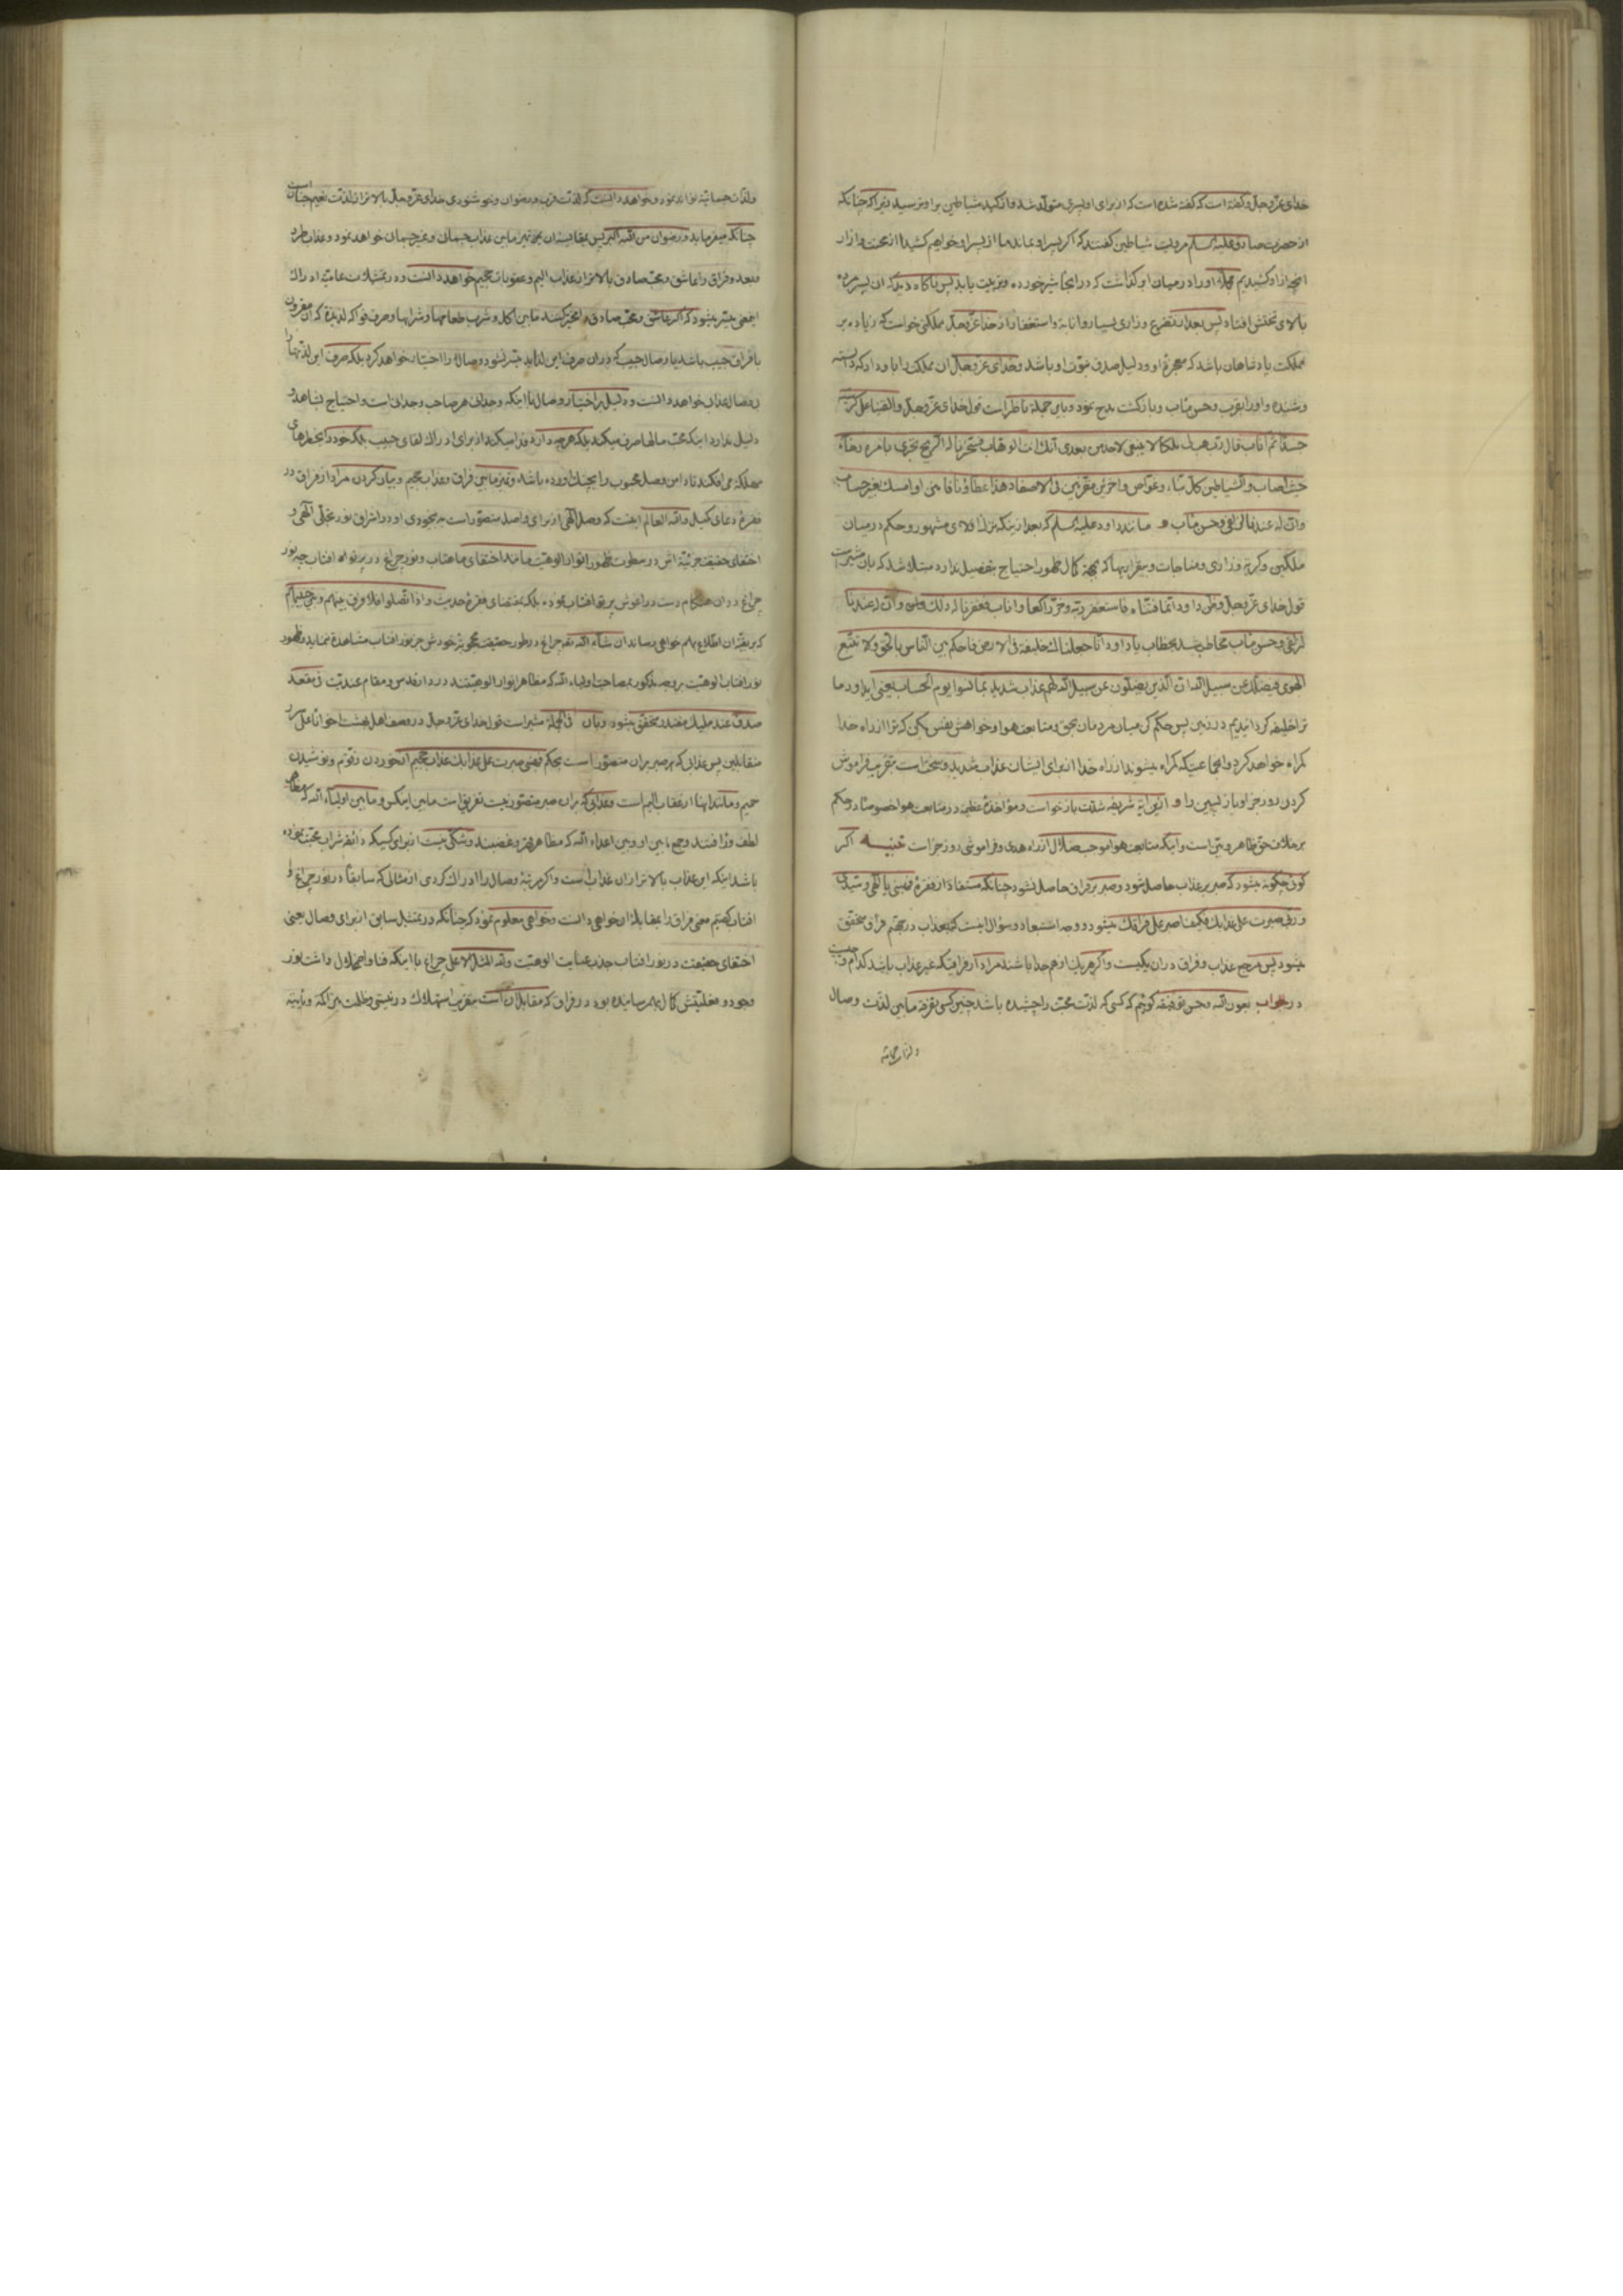 خدای عزّوجلّ وگفته است که گفته شده است که از برای او پسری متولّد شد و از کید شیاطین بر او ترسید زیرا که چنانکه
از حضرت صادق علیه السلم مرویست شیاطین گفتند که اگر پسر او بماند ما از پسر او خواهیم کشید از محنت و ازار
انچه از او کشیدیم او را در میان ابر گذاشت که در انجا شیر خورده و تربیت یابد پس ناکاه دید که ان پسر مرده
بالای تختش افتاد پس بعد از تضرع و زاری بسیار و انابة و استغفار از خدا عزّوجلّ مملکتی خواست که زیاده بر
مملکت پادشاهان باشد که معجزهٔ او و دلیل صدق نبوّت او باشد و خدای عزّوجلّ ان مملکت را باو داد
و او را بقرب و حسن مئاب و بازکشت مدح نمود و باین جمله ناظر است قول خدای عزّوجلّ والقینا علی کرسیه
جسدًا ثمّ اناب قال ربّ هب لی ملکا لا ینبغی لاحد من بعدی انّک انت الوهّاب فسخّرنا له الرّیح تجری بامره رخاءً
حیث اصاب والشّیاطین کلّ بنّاء وغوّاص واخرین مقرّنین فی الاصفاد هذا عطاؤنا فامنن او امسک بغیر حساب
وانّ له عندنا لزلفی وحسن مئاب و مانند داود علیه السلم که بعد از اینکه ترک اولای مشهور و حکم در میان
ملکین و کریه و زاری و مناجات و بیقراریها که بجهة کمال ظهور احتیاج بتفصیل ندارد مبتلا شد که بان مشیر است
قول خدای عزّوجلّ وظنّ داود انّما فتنّاه فاستغفر ربّه وخرّ راکعا واناب فغفرنا له ذلک وانّ له عندنا
لزلفی وحسن مئاب مخاطب شد بخطاب یا داود انّا جعلناک خلیفة فی الارض فاحکم بین النّاس بالحقّ ولا تتّبع
الهوی فیضلّک عن سبیل الله انّ الّذین یضلّون عن سبیل الله لهم عذاب شدید بما نسوا یوم الحساب یعنی ای داود ما
ترا خلیفه کردانیدیم در زمین پس حکم کن میان مردمان بحقّ و متابعت هوا و خواهش نفس مکن که ترا از راه خدا
کمراه خواهد کرد و انجماعتیکه کمراه میشوند از راه خدا از برای ایشان عذاب شدید و سخت است بتقریب فراموش
کردن روز جزا و بازپسین را و ازین ایهٔ شریفه شدّت بازخواست و مؤاخذهٔ عظیمه در متابعت هوا خصوصًا در حکم
بر خلاف حقّ ظاهر و بیّن است و اینکه متابعت هوا موجب ضلال از راه هدی و فراموشی روز جزاست تنبیه اکر
کوئی چکونه میشود که صبر بر عذاب حاصل شود و صبر بر فراق حاصل نشود چنانکه مستفاد از فقرهٔ فهبنی یا الهی و سیّدی
و ربّی صبرت علی عذابک فکیف اصبر علی فراقک میشود و وجه استبعاد و سؤال اینست که عذاب در جهنّم فراق محقّق
میشود پس مرجع عذاب و فراق در ان یکیست و اکر هر یک از هم جدا باشند مراد از فراقیکه غیر عذاب باشد کدام
در جواب بعون الله و حسن توفیقه کوئیم که کسی که لذّت محبّت را چشیده باشد چنین کسی تفرقه ما بین لذّت وصال
ولذّات جسمانیّه
ولذّات جسمانیّه تواند نمود و خواهد دانست که لذّت قرب و رضوان و خوشنودی خدای عزّوجلّ بالاتر از لذّت نعیم جنان است
چنانکه میفرماید و رضوان من الله اکبر پس بمقایسهٔ ان تمیز مابین عذاب جسمانی و غیر جسمانی خواهد نمود و عذاب طرد
و بعد و فراق را عاشق و محبّ صادق بالاتر از عذاب الیم و عقوبات جحیم خواهد دانست و در تمثیلات عامیّه ادراک
اینمعنی میسّر میشود که اکر عاشق و محبّ صادق را مخیّر کنند مابین اکل و شرب طعامها و شرابها و صرف فواکه لذیذه که ان مقرون
با فراق حبیب باشد یا وصال حبیب که در ان صرف این لذاید میسّر نشود وصال را اختیار خواهد کرد بلکه صرف این لذّتها را
بی وصال عذاب خواهد دانست و دلیل بر اختیار وصال با اینکه وجدانی هر صاحب وجدانی است و احتیاج بشاهد و
دلیل ندارد اینکه محبّ مالها صرف میکند بلکه هرچه دارد فدا میکند از برای ادراک لقای حبیب بلکه خود را بخطرهای
مهلکه می افکند تا دامن وصل محبوب را بچنک اورده باشد و تمیز مابین فراق و عذاب جحیم و بیان کردن مراد از فراق در
فقرهٔ دعای کمیل والله العالم اینست که وصل الهی از برای واصل متصوّر است به بیخودی او در اشراق نور تجلّی الهی و
اختفای حقیقت جزئیّه اش در سطوت ظهور انوار الوهیّت مانند اختفای ماهتاب و نور چراغ در پرتو افتاب چه نور
چراغ در ان هنکام دست در اغوش پرتو افتاب بوده بلکه بمقتضای فقرهٔ حدیث واذا اتّصلوا فلا فرق بینهم وبین حبیبهم
که بزودی بر ان اطّلاع بهم خواهی رساند ان شاء الله نور چراغ در طور حقیقت محجوبهٔ خودش جز نور افتاب مشاهده ننماید و ظهور
نور افتاب الوهیّت بر وجه مذکور بمصاحبت اولیاء الله که مظاهر انوار الوهیّتند در دار قدس و مقام عندیّت فی مقعد
صدق عند ملیک مقتدر محقّق میشود و بان فی الجمله مشیر است قول خدای عزّوجلّ در وصف اهل بهشت اخوانًا علی سرر
متقابلین پس عذابی که صبر بر ان متصوّر است بحکم فهبنی صبرت علی عذابک عذاب جحیم از خوردن زقّوم و نوشیدن
حمیم و مانند اینها از عقاب الیم است و عذابی که بر ان صبر متصوّر نیست تفریق است مابین اینکس و مابین اولیاء الله که مظاهر
لطف و رافتند و جمع مابین او و بین اعداء الله که مظاهر قهر و غضبند و شکّی نیست از برای کسیکه ذائقه شراب محبّت نموده
باشد اینکه این عذاب بالاتر از ان عذاب است و اکر مرتبهٔ وصال را ادراک کردی از مثالی که سابقًا در نور چراغ و
افتاب کفتیم معنی فراق را بمقابلهٔ ان خواهی دانست و خواهی معلوم نمود که چنانکه در تمثیل سابق از برای وصال یعنی
اختفای حقیقت در نور افتاب جذب عنایت الوهیّت ولله المثل الاعلی چراغ با اینکه فنا و اضمحلال داشت نور
وجود و معلّقیّتش کمال بهم رسانیده بود در فراق که مقابل ان است بتقریب استهلاک در نیستی و ظلمت